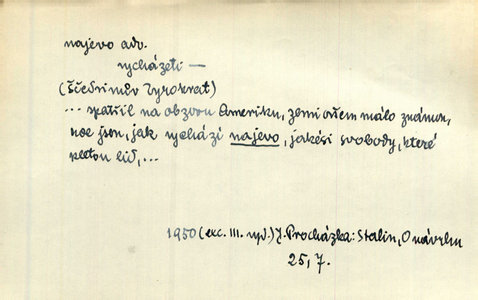 najevo adv.
vycházeti —
(Ščedrinův byrokrat)
... spatřil na obzoru Ameriku, zemi ovšem málo známou,
kde jsou, jak vychází najevo, jakési svobody, které
pletou lid, ...
1950 (exc. III. vyd.) J. Procházka: Stalin, O návrhu
25, 7.